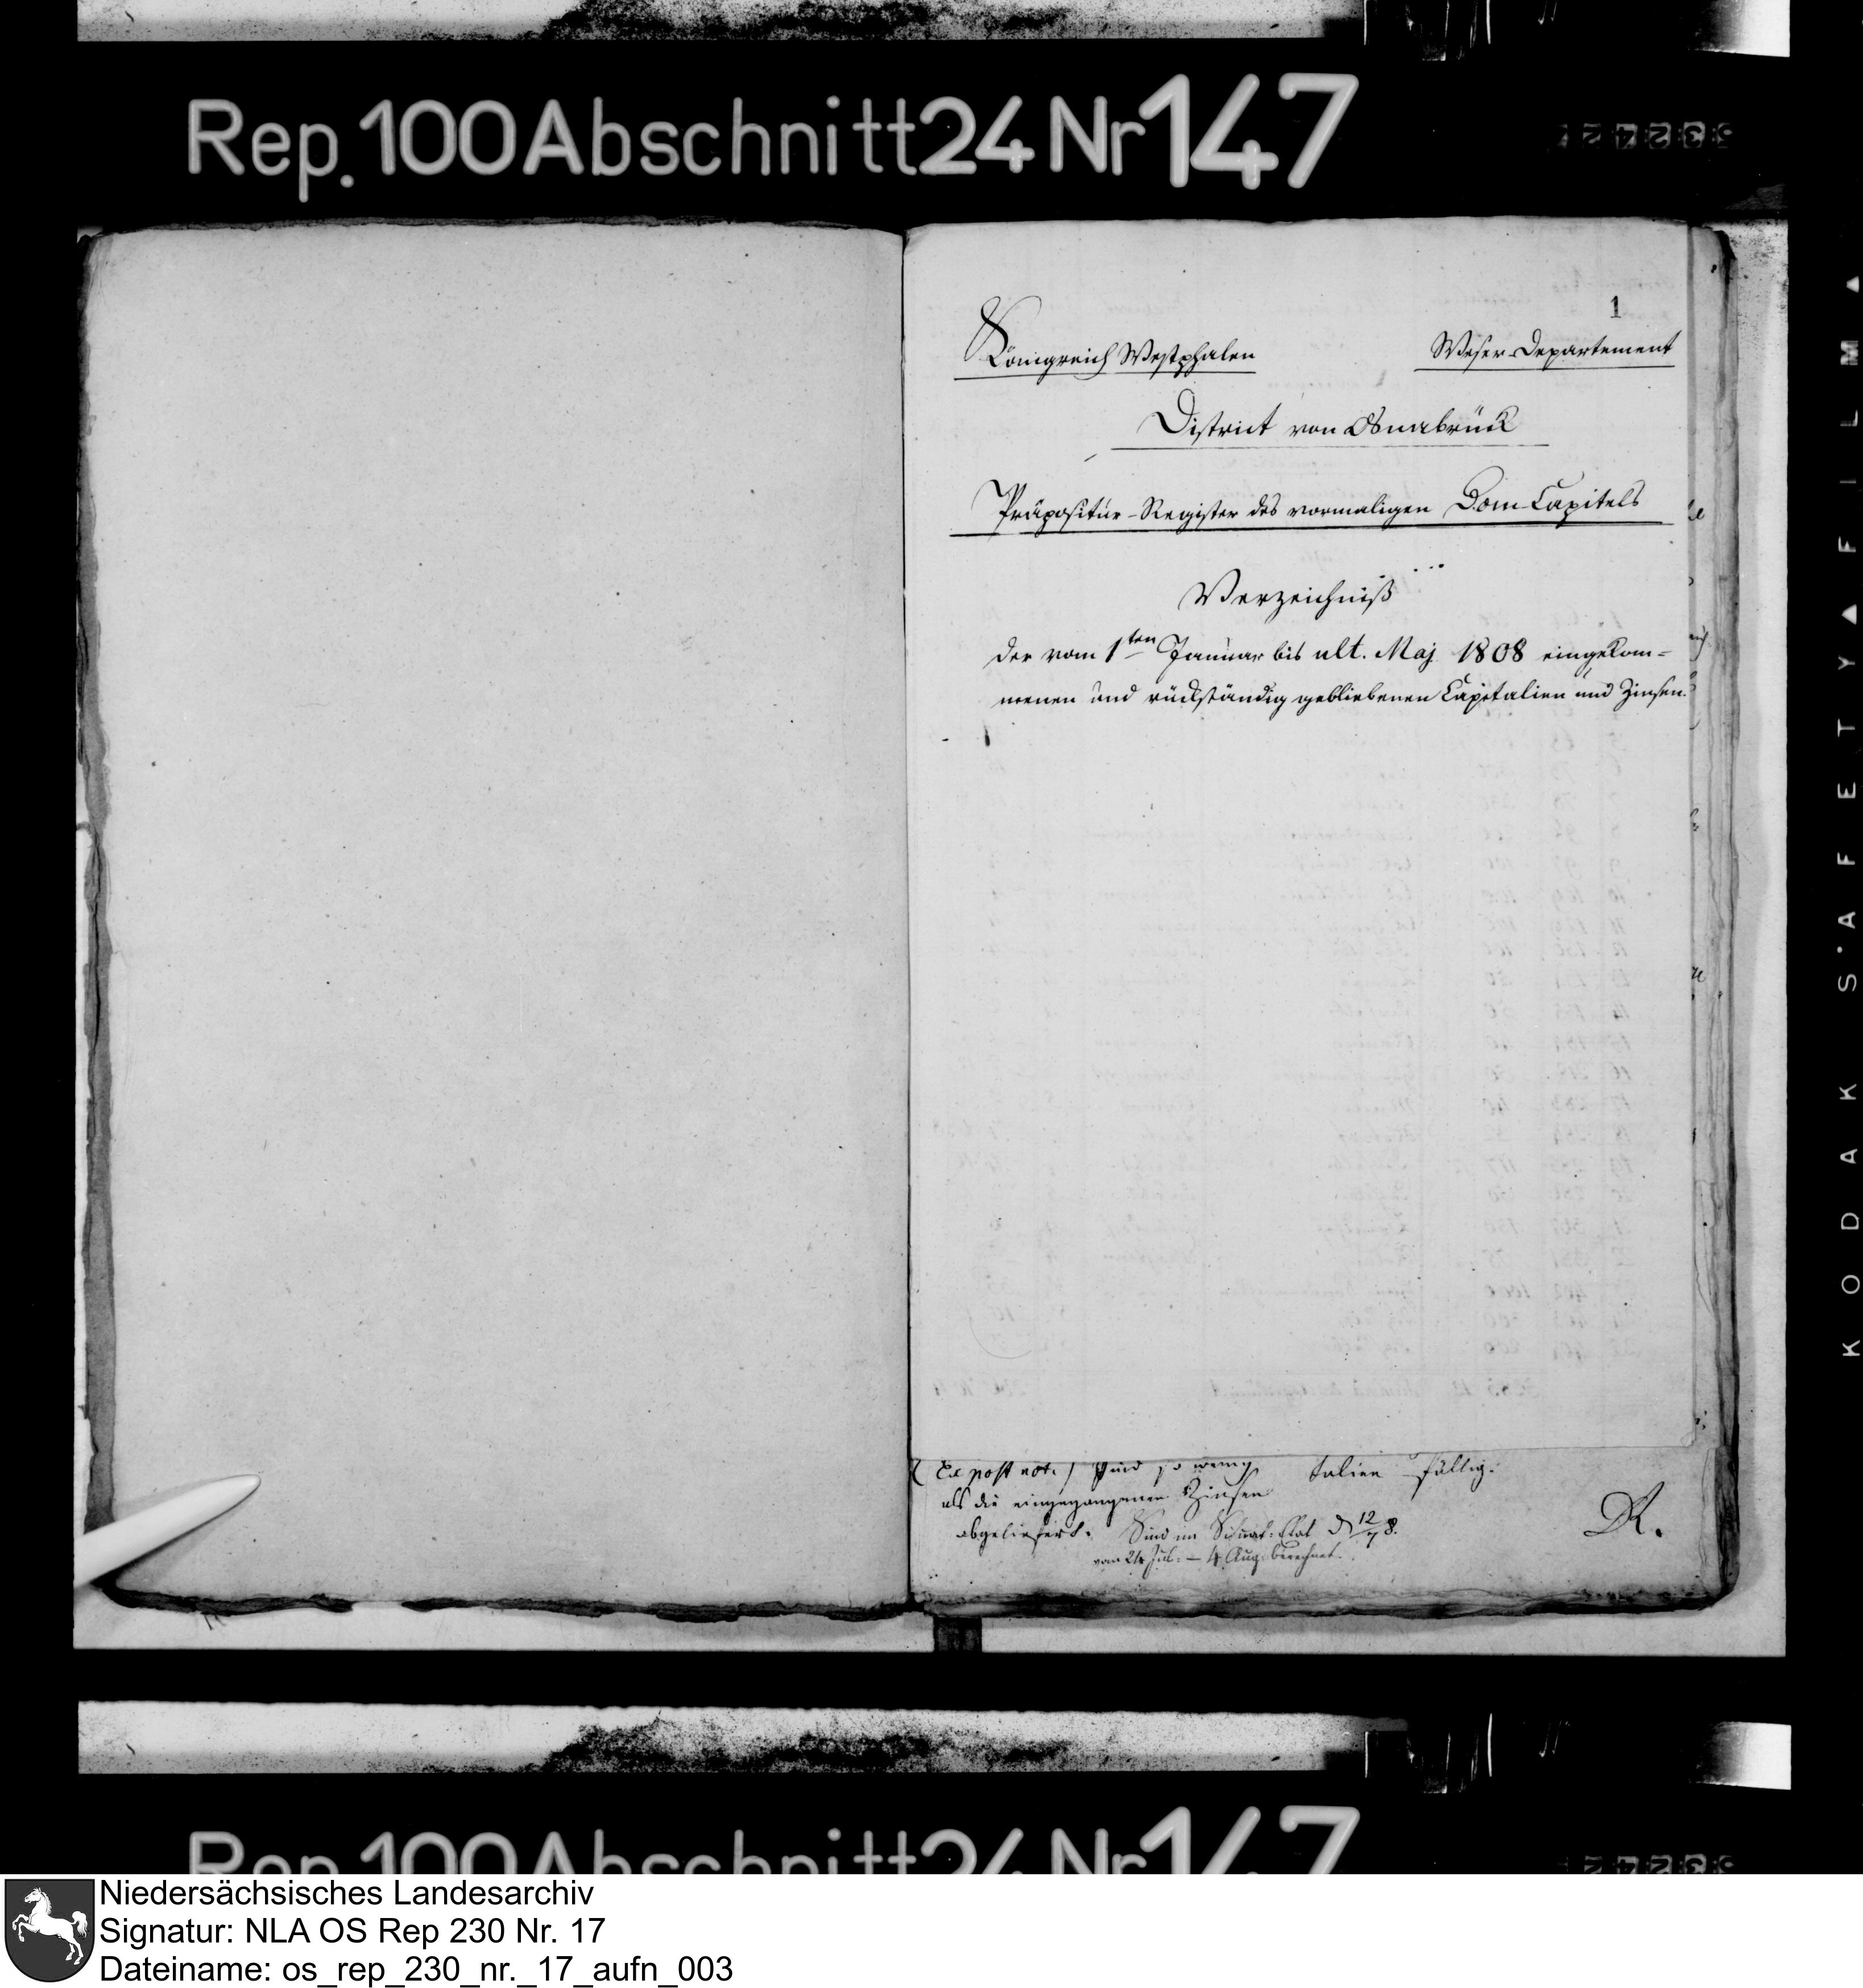 Rep. 100 Abschnitt 24 Nr 147
1
Königreich Westphalen
Weser-Departement
District von Osnabrück
Präpositur-Register des vormaligen Dom-Capitels
Verzeichniß
der vom 1ten Januar bis ult. Maj 1808 eingekom=
menen und rückständig gebliebenen Capitalien und Zinsen.
(Ex post not.) sind so wenig talien fällig.
als die eingegangenen Zinsen
abgeliefert. Sind im Situat: Etat d 12/7 8.
vom 24 Jul: – 4 Aug: berechnet.
R.
KODAK SAFETY FILM
Rep. 100 Abschnitt 24 Nr 147
Niedersächsisches Landesarchiv
Signatur: NLA OS Rep 230 Nr. 17
Dateiname: os_rep_230_nr._17_aufn_003